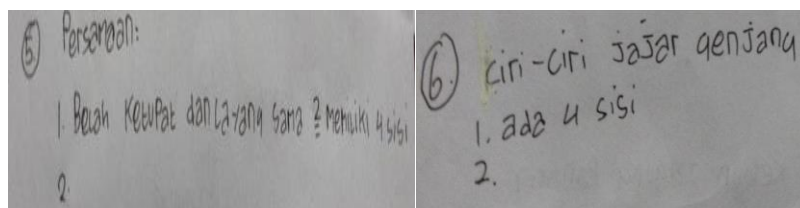 5 Persamaan:
1. Belah Ketupat dan La-yang sama 2 memiliki 4 sisi
2.
6. Ciri-ciri jajar genjang
1. ada 4 sisi
2.